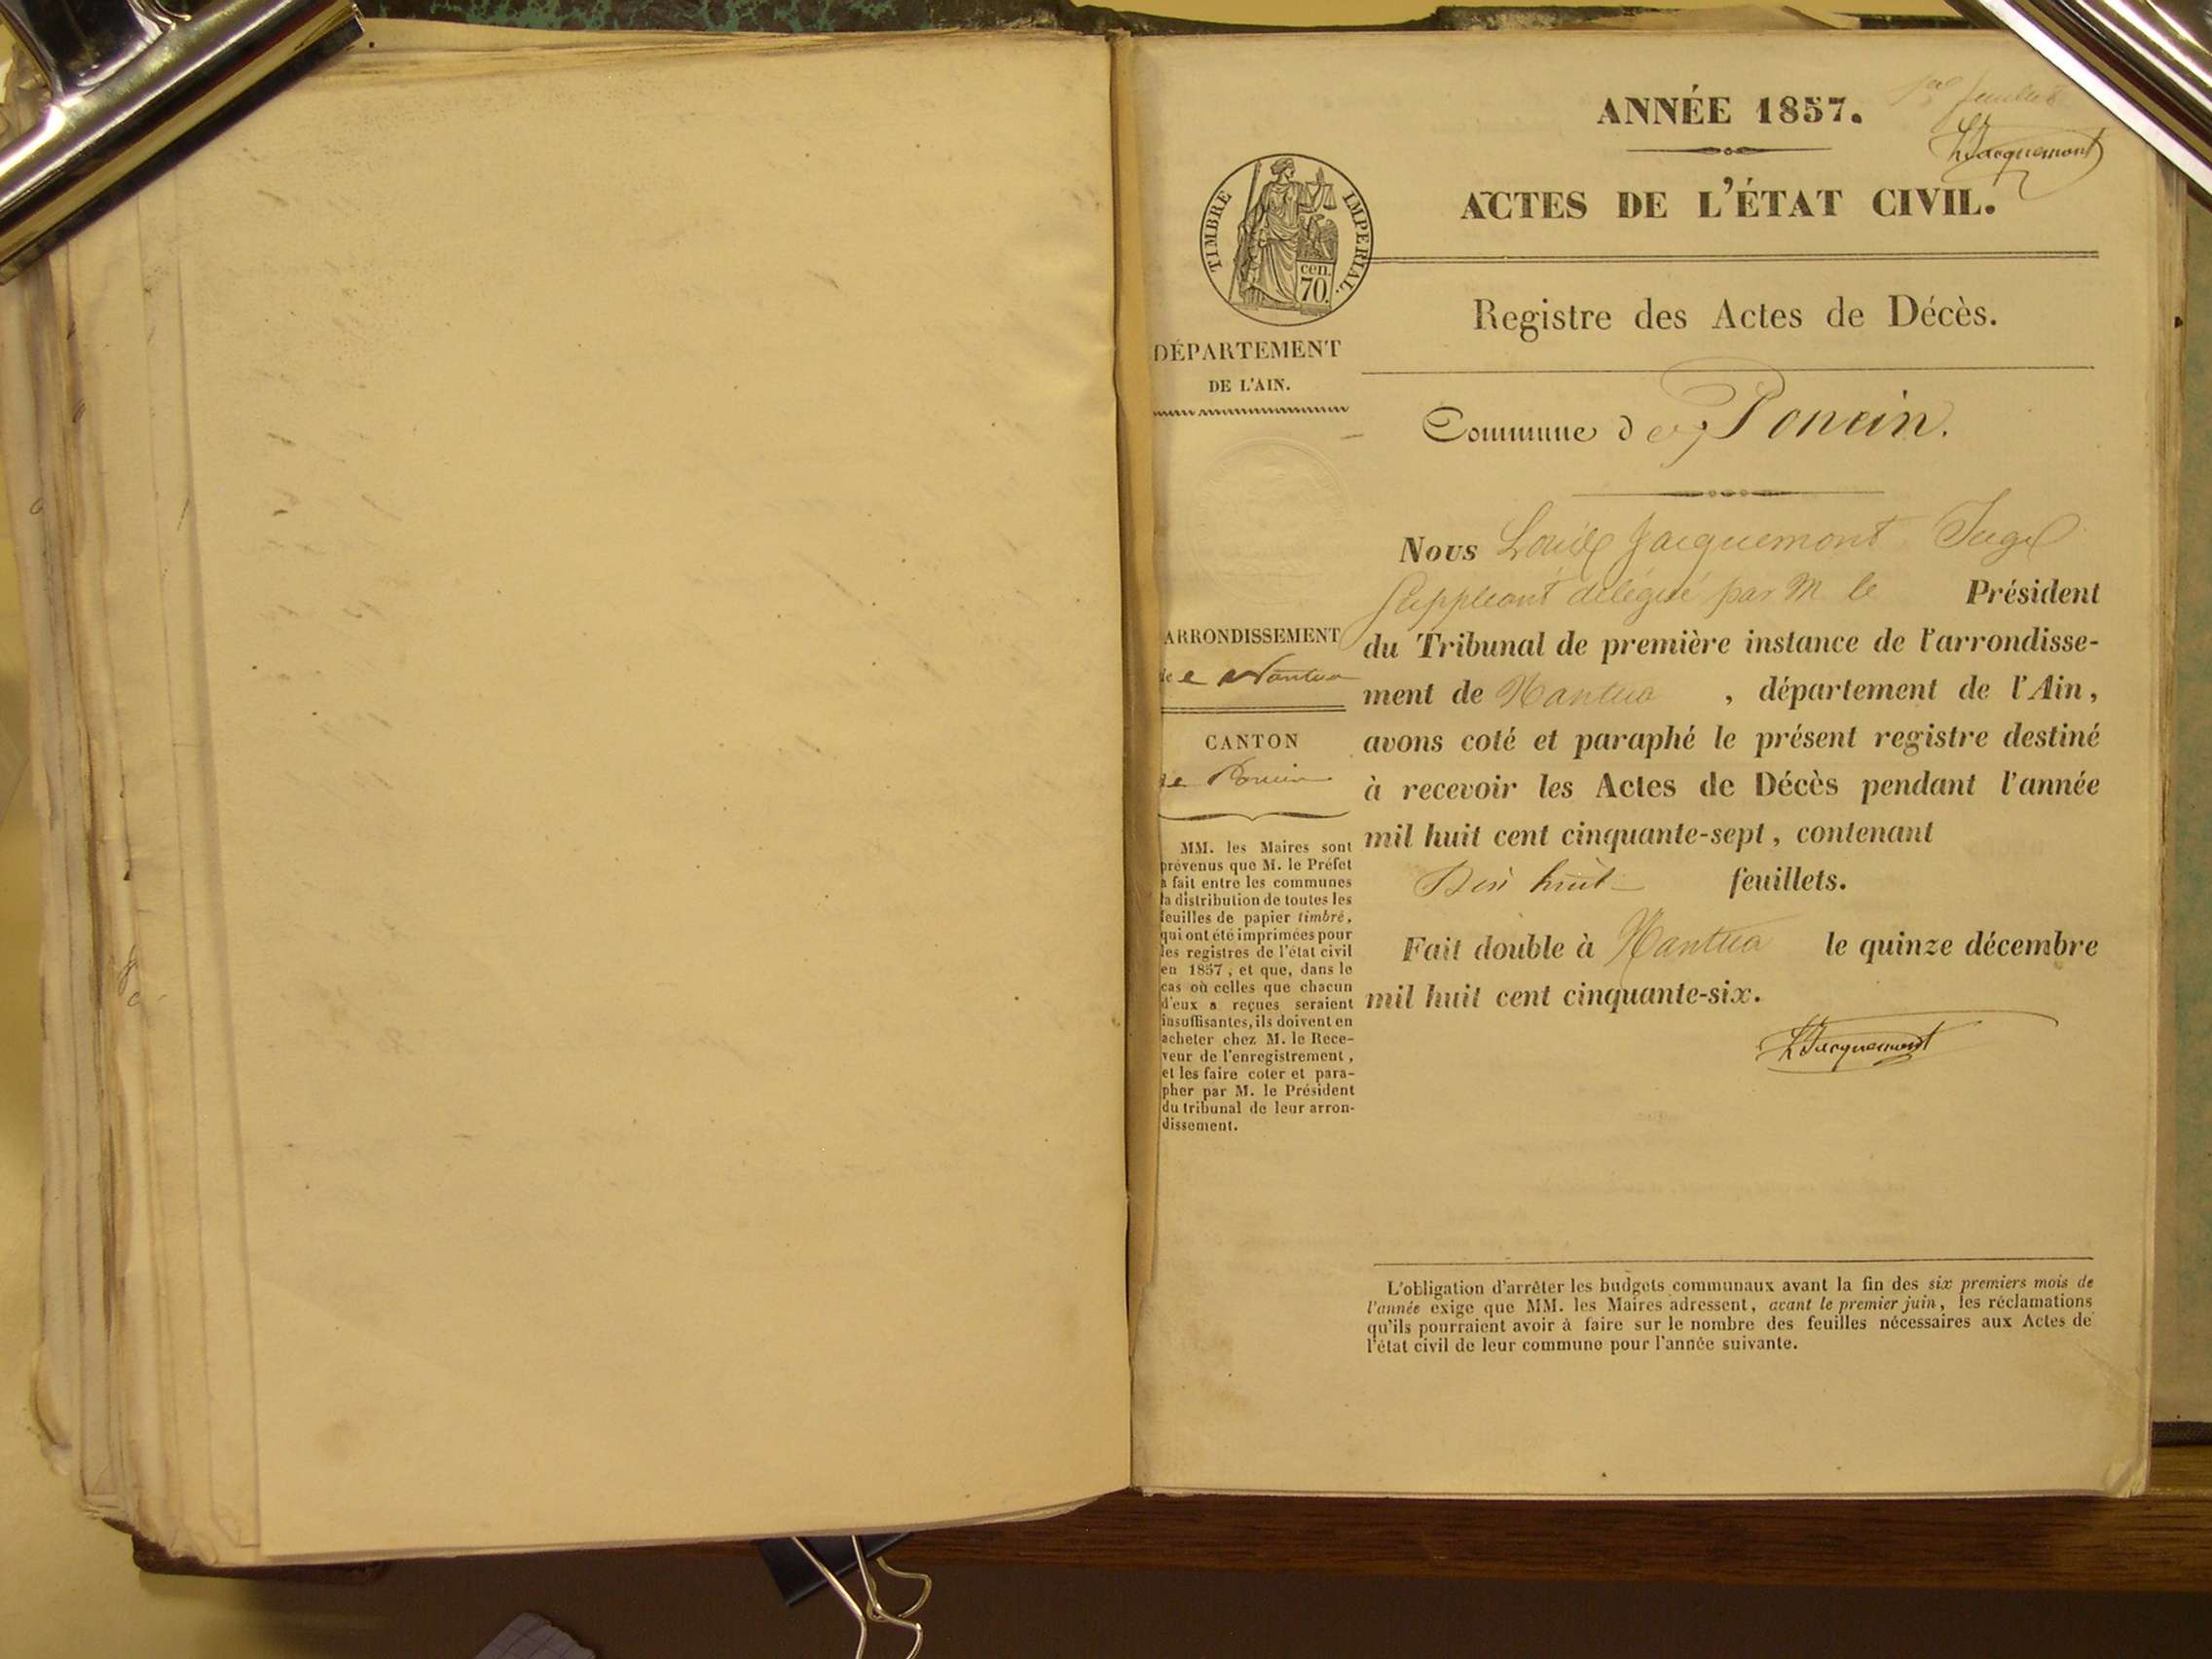 1er feuillet
LJacquemont
ANNÉE 1857.
ACTES DE L'ÉTAT CIVIL.
TIMBRE IMPERIAL.
cen.
70.
Registre des Actes de Décès.
DÉPARTEMENT
DE L'AIN.
Commune de Poncin.
ARRONDISSEMENT
de Nantua
CANTON
de Poncin
MM. les Maires sont
prévenus que M. le Préfet
a fait entre les communes
la distribution de toutes les
feuilles de papier timbré,
qui ont été imprimées pour
les registres de l'état civil
en 1857, et que, dans le
cas où celles que chacun
d'eux a reçues seraient
insuffisantes, ils doivent en
acheter chez M. le Rece-
veur de l'enregistrement,
et les faire coter et para-
pher par M. le Président
du tribunal de leur arron-
dissement.
Nous Louis Jacquemont Juge
Suppléant délégué par M le Président
du Tribunal de première instance de l'arrondisse-
ment de Nantua , département de l'Ain,
avons coté et paraphé le présent registre destiné
à recevoir les Actes de Décès pendant l'année
mil huit cent cinquante-sept, contenant
Dix huit feuillets.
Fait double à Nantua le quinze décembre
mil huit cent cinquante-six.
LJacquemont
L'obligation d'arrêter les budgets communaux avant la fin des six premiers mois de
l'année exige que MM. les Maires adressent, avant le premier juin, les réclamations
qu'ils pourraient avoir à faire sur le nombre des feuilles nécessaires aux Actes de
l'état civil de leur commune pour l'année suivante.